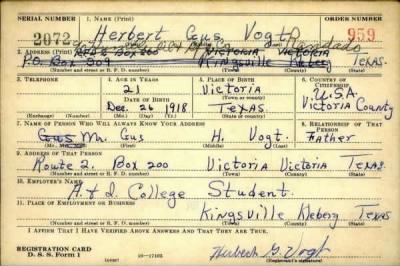 SERIAL NUMBER 1. NAME (Print) ORDER NUMBER
2072 Herbert Gus Vogt 959
2. ADDRESS (Print) RFD 2 Box 200 Victoria Victoria
P.O. Box 809 Kingsville Kleberg Texas.
(Number and street or R. F. D. number) (Town) (County) (State)
3. TELEPHONE 4. AGE IN YEARS 5. PLACE OF BIRTH 6. COUNTRY OF CITIZENSHIP
21 Victoria U.S.A.
DATE OF BIRTH (Town or county) Victoria County
Dec. 26 1918 Texas.
(Exchange) (Number) (Mo.) (Day) (Yr.) (State or country)
7. NAME OF PERSON WHO WILL ALWAYS KNOW YOUR ADDRESS 8. RELATIONSHIP OF THAT PERSON
Gus Mr. Gus H. Vogt. Father
(First) (Middle) (Last)
9. ADDRESS OF THAT PERSON
Route 2. Box 200 Victoria Victoria Texas.
(Number and street or R. F. D. number) (Town) (County) (State)
10. EMPLOYER'S NAME
A. & I. College Student.
11. PLACE OF EMPLOYMENT OR BUSINESS
Kingsville Kleberg Texas
(Number and street or R. F. D. number) (Town) (County) (State)
I AFFIRM THAT I HAVE VERIFIED ABOVE ANSWERS AND THAT THEY ARE TRUE.
REGISTRATION CARD
D. S. S. Form 1 16—17105 Herbert G. Vogt
(Registrant's signature)